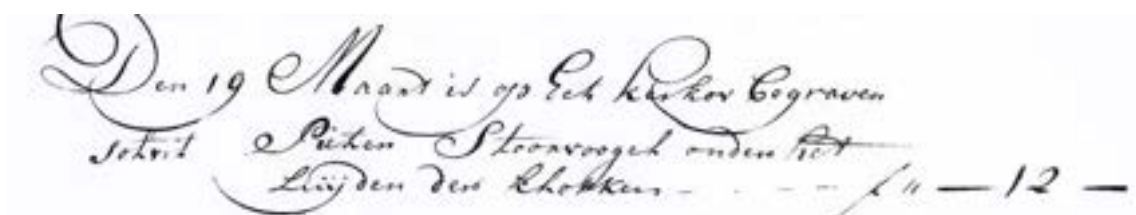 Den 19 Maart is op het kerkhov begraven
Pieter Stoorvoogel onder het
Luijden der Klokken - - - - - f " — 12 —